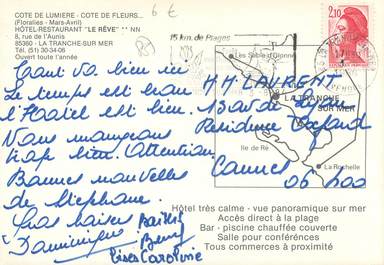 COTE DE LUMIERE - COTE DE FLEURS...
(Floralies - Mars-Avril)
HÔTEL-RESTAURANT "LE RÊVE" ** NN
8, rue de l'Aunis
85360 - LA TRANCHE SUR MER
Tél. (51) 30-34-06
Ouvert toute l'année
6 €
15 km de Plages
2,10
Les Sables d'Olonne
LA TRANCHE
SUR MER
Ile de Ré
La Rochelle
Tout va bien ici
Le temps est beau
l'Hotel est bien.
Nous mangeons
trop bien. Attention
Bonnes nouvelles
de Stéphane.
Gros baisers
Dominique
Bises Caroline
M M LAURENT
13 av de
Residence Oxford
Cannes
06 400
Hôtel très calme - vue panoramique sur mer
Accès direct à la plage
Bar - piscine chauffée couverte
Salle pour conférences
Tous commerces à proximité